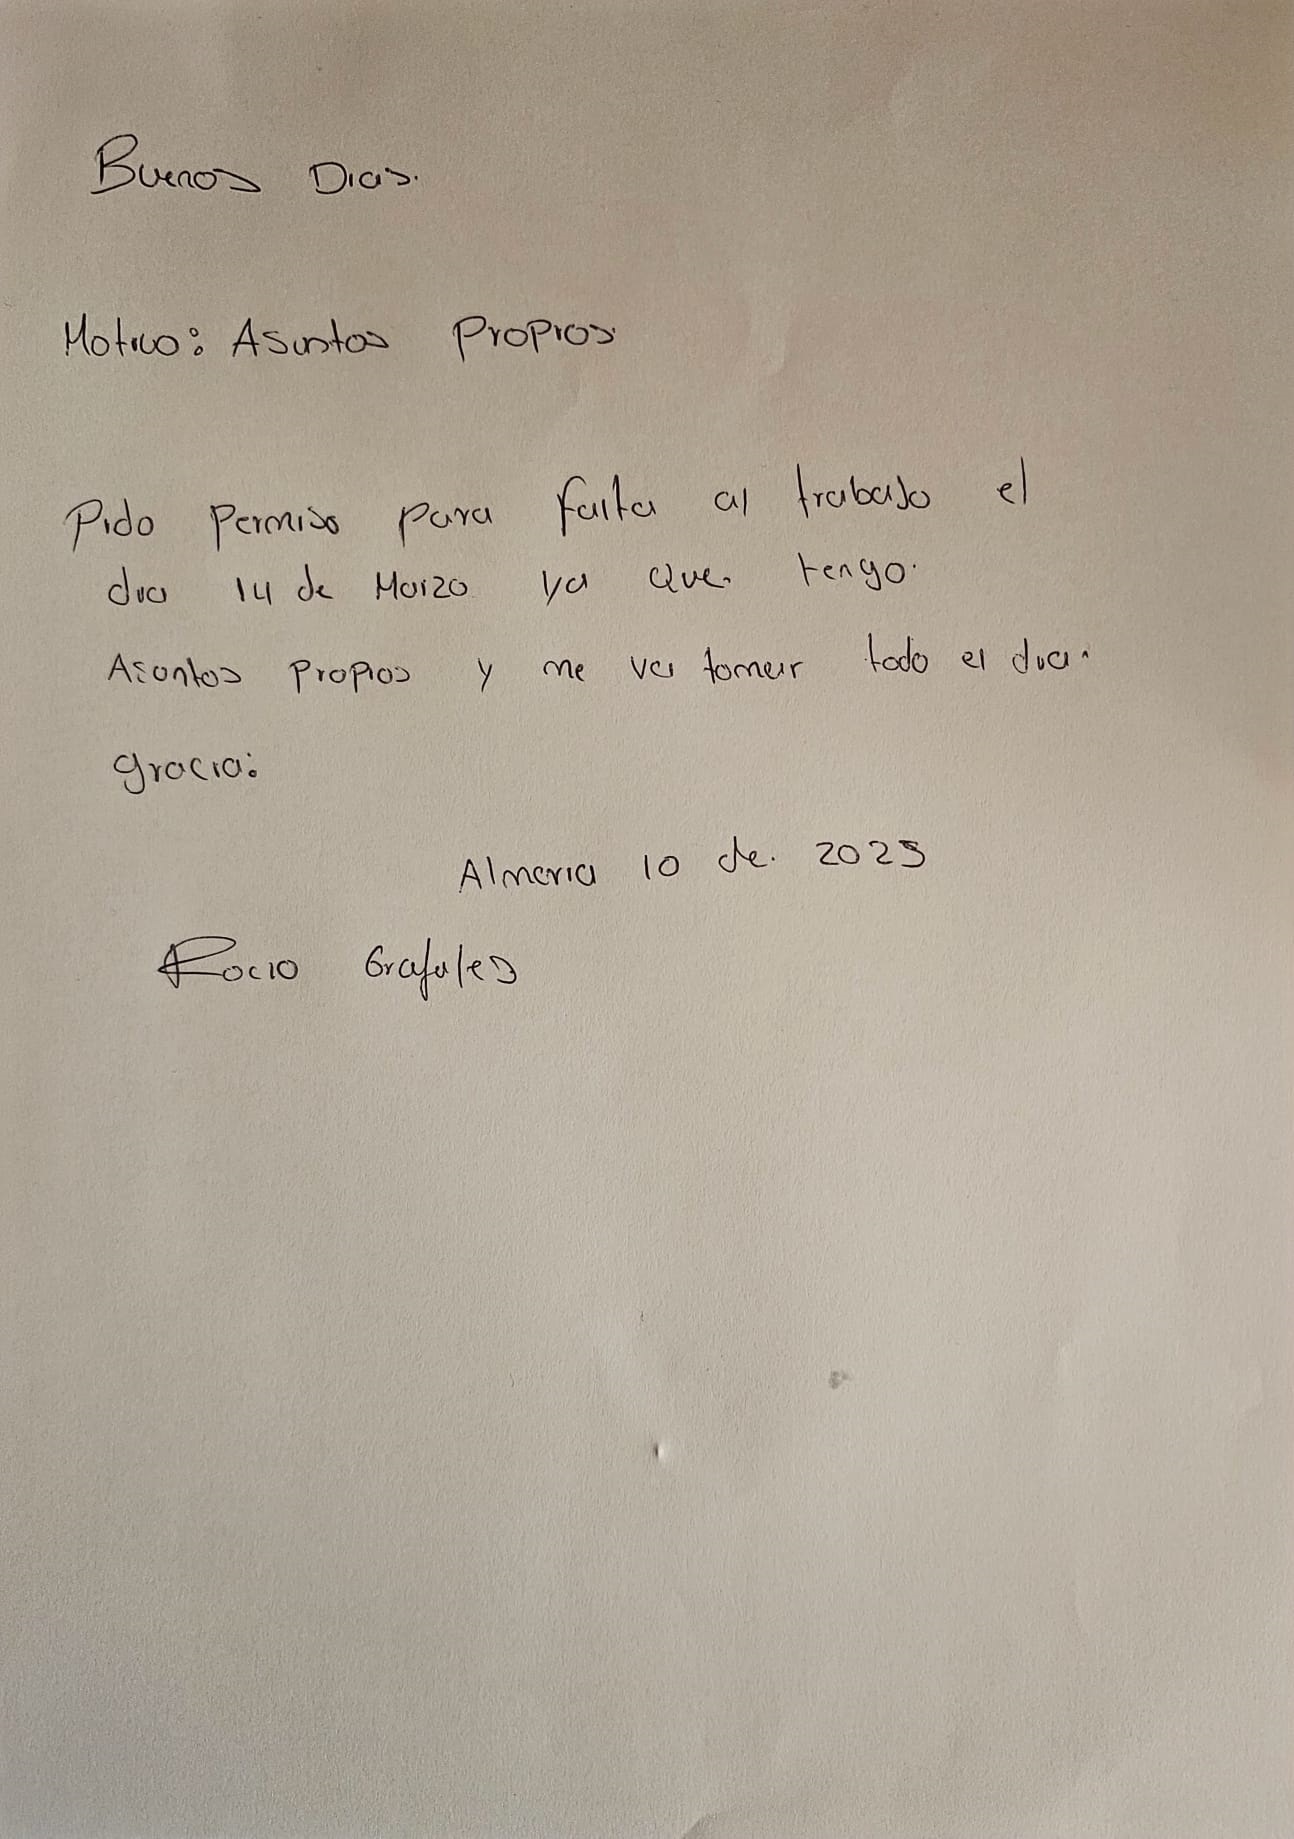 Buenos Dias.
Motivo: Asuntos Propios
Pido Permiso para falta al trabajo el
dia 14 de Marzo ya que tengo.
Asontos Propios y me va tomar todo el dia.
gracia:
Almeria 10 de. 2025
Rocio Grafales